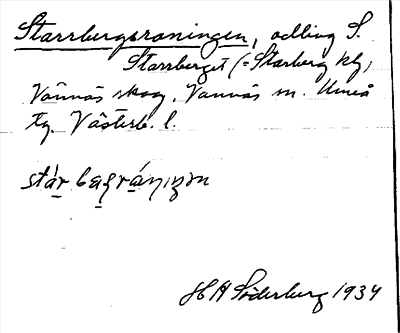 Starrbergsröningen, odling S.
Starrberget (= Starberg kly,
Vännäs skog, Vännäs sn. Umeå
tg. Västerb. l.
H A Söderberg 1934